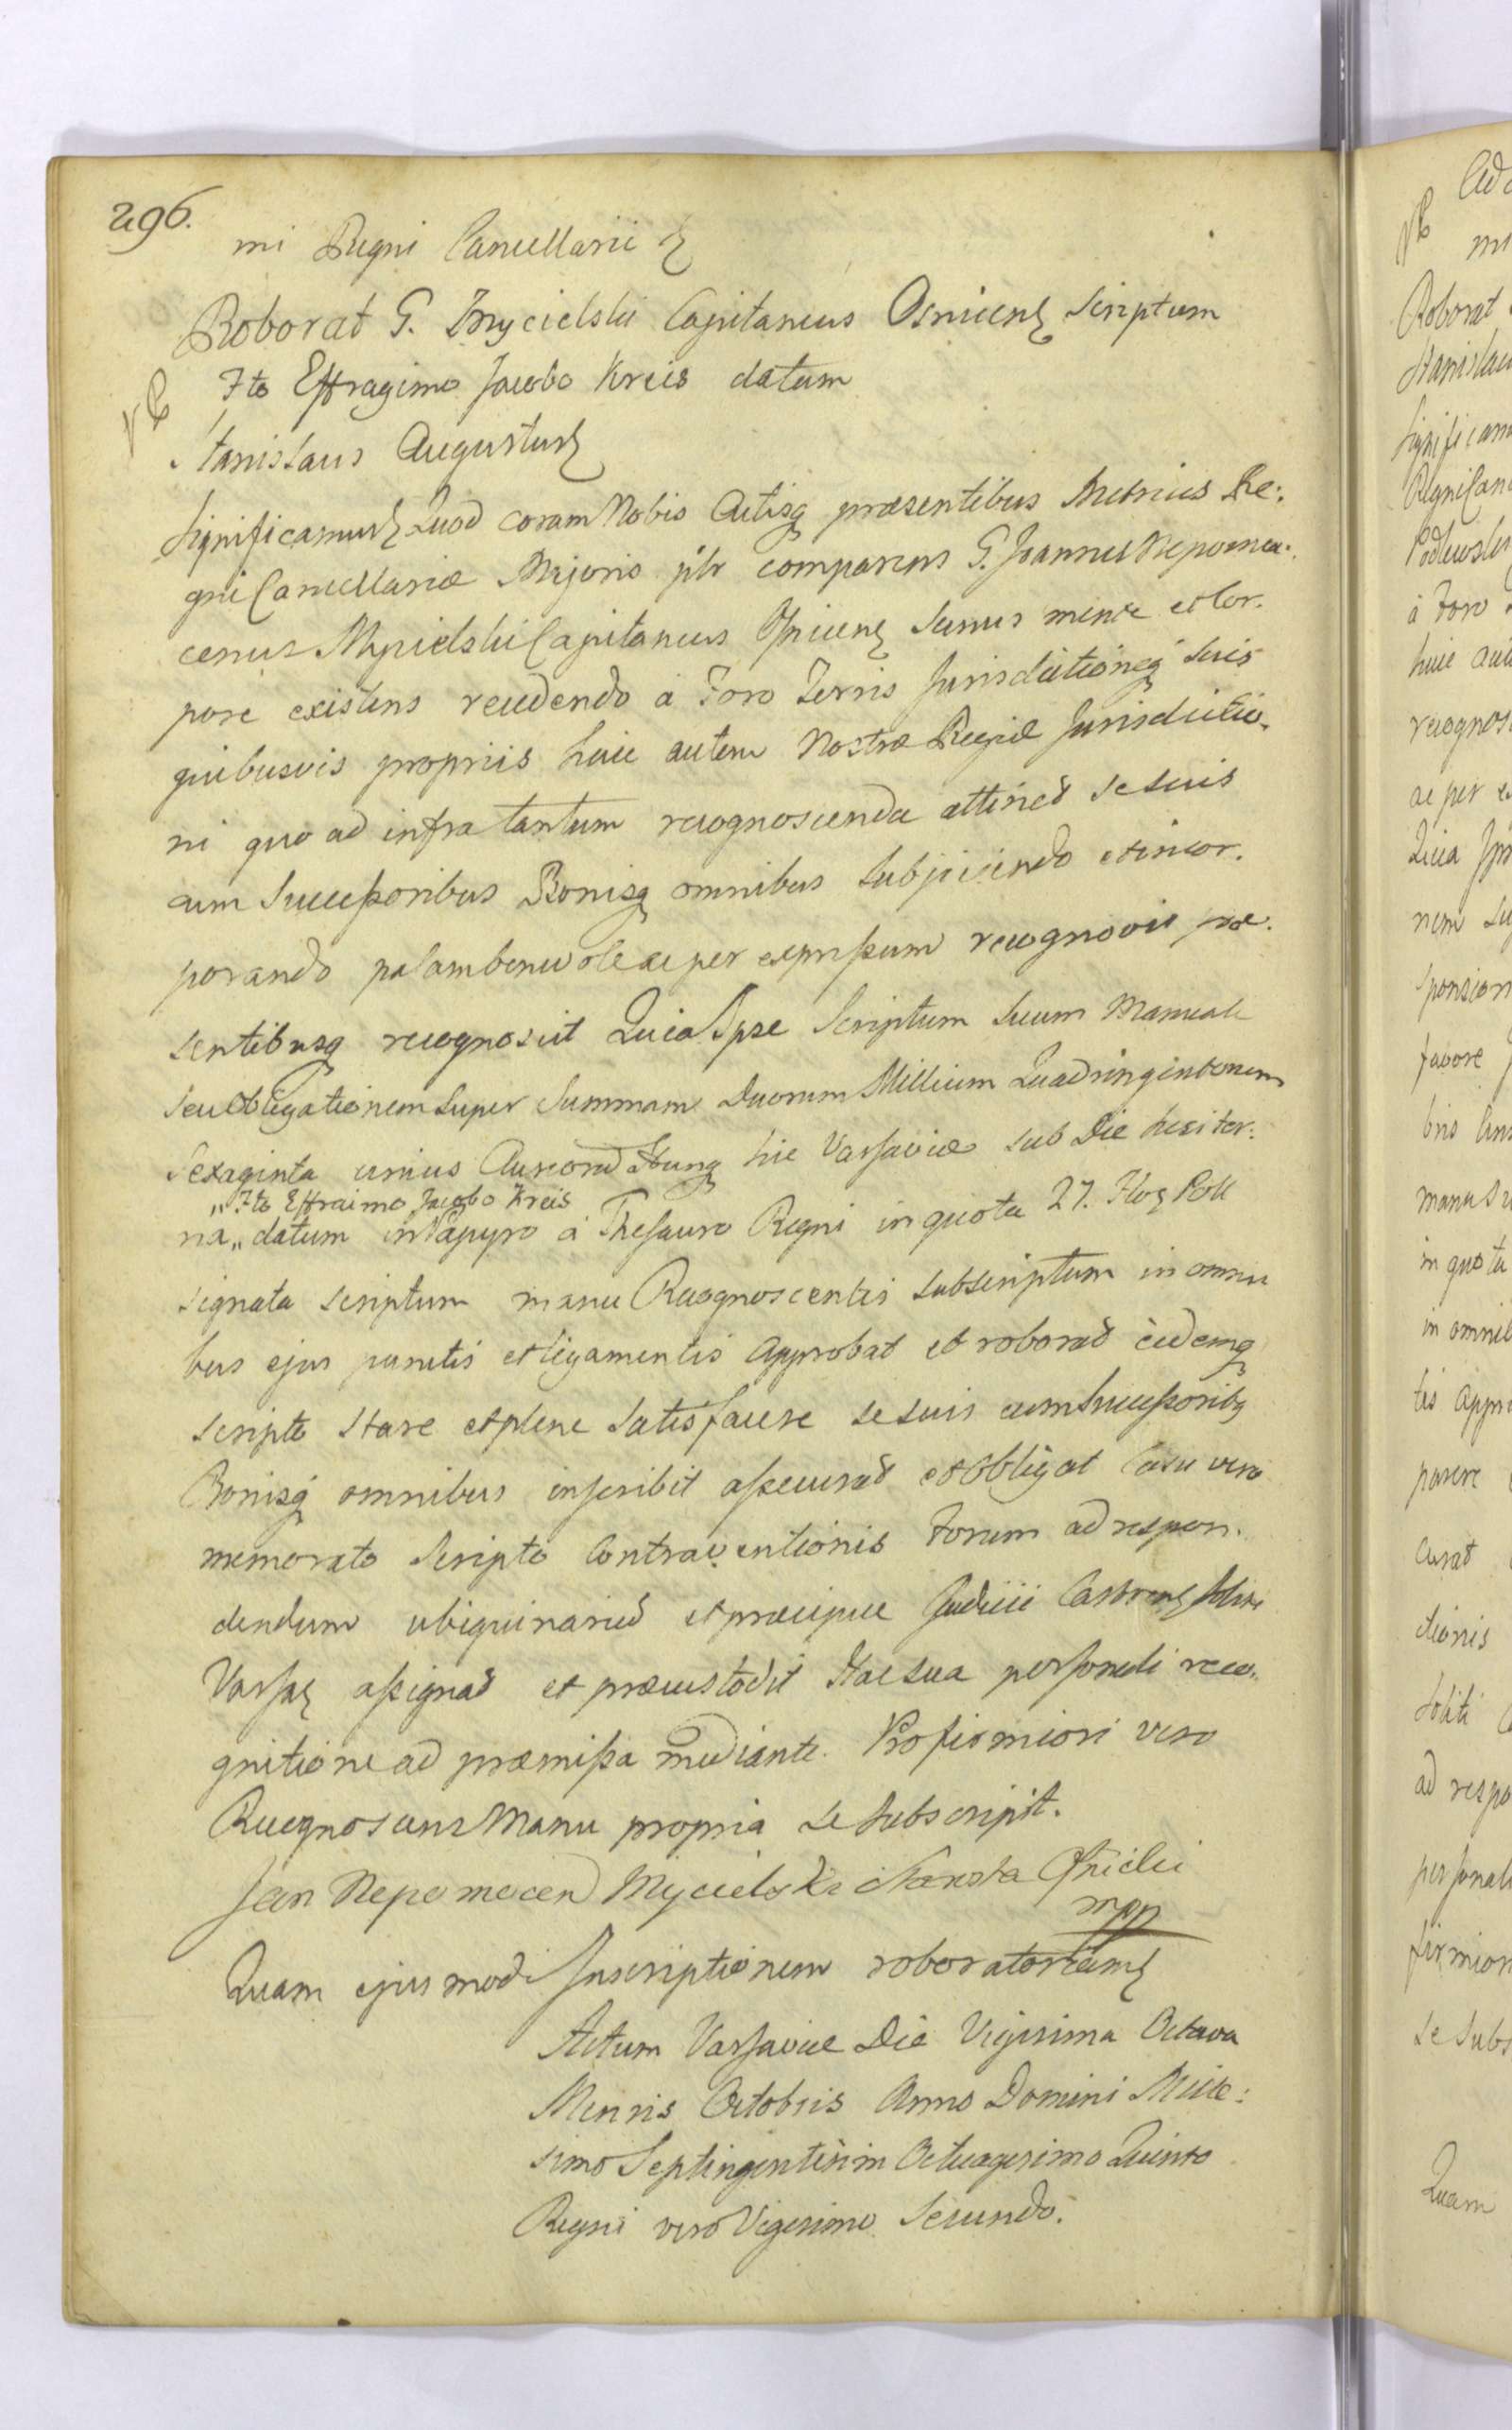 296.
mi Regni Cancellarii
Roborat G. Mycielski Capitaneus Osniecens Scriptum
Ito Effragimo Jacobo Kreis datum
Stanislaus Augustus
Significamus Quod coram Nobis Actisq praesentibus Metrices Re:
gni Cancellariae Majoris plr comparens G. Joannes Nepomu.
cenus Mycielski Capitaneus Osniecens Sanus mente et Cor.
pore existens recedendo à Foro Terris Jurisdictioneq suis
quibusvis propriis huic autem Nostrae Regiae Jurisdictio.
ni quo ad infra tantum recognoscenda attinet se suis
cum Successoribus Bonisq omnibus Subjiciendo et incor.
porando palam benevole ac per expressum recognovit prae.
sentibusq recognoscit Quia Ipse Scriptum Suum Manuale
seu Obligationem Super Summam Duorum Millium Quadringentorum
Sexaginta unius Aureorū Hung hic Varsaviae sub Die hesiter:
„Ito Effraimo Jacobo Kreis
na„ datum in Papyro à Thesauro Regni in quota 27. Flor Poll
signata scriptum manu Recognoscentis subscriptum in omni
bus ejus punctis et ligamentis approbat et roborat eidemq
scripto stare et plene Satisfacere se suis cum Successoribq
Bonisq omnibus inscribit assecurat et obligat Casu vero
memorato Scripto Contraventionis Forum ad respon.
dendum ubiquinarium et praecipue Judicii Castrens
Varsav assignat et praecustodit Hac sua personali reco.
gnitione ad praemissa mediante. Pro firmiori vero
Recognoscens Manu propria se Subscripsit.
Jan Nepomocen Mycielski Starosta Osnicki
mpp
Quam ejusmodi Inscriptionem roboratoriam
Actum Varsaviae Die Vigesima Octava
Mensis Octobris Anno Domini Mille:
simo Septingentesim Octuagesimo Quinto
Regni vero Vigesimo Secundo.